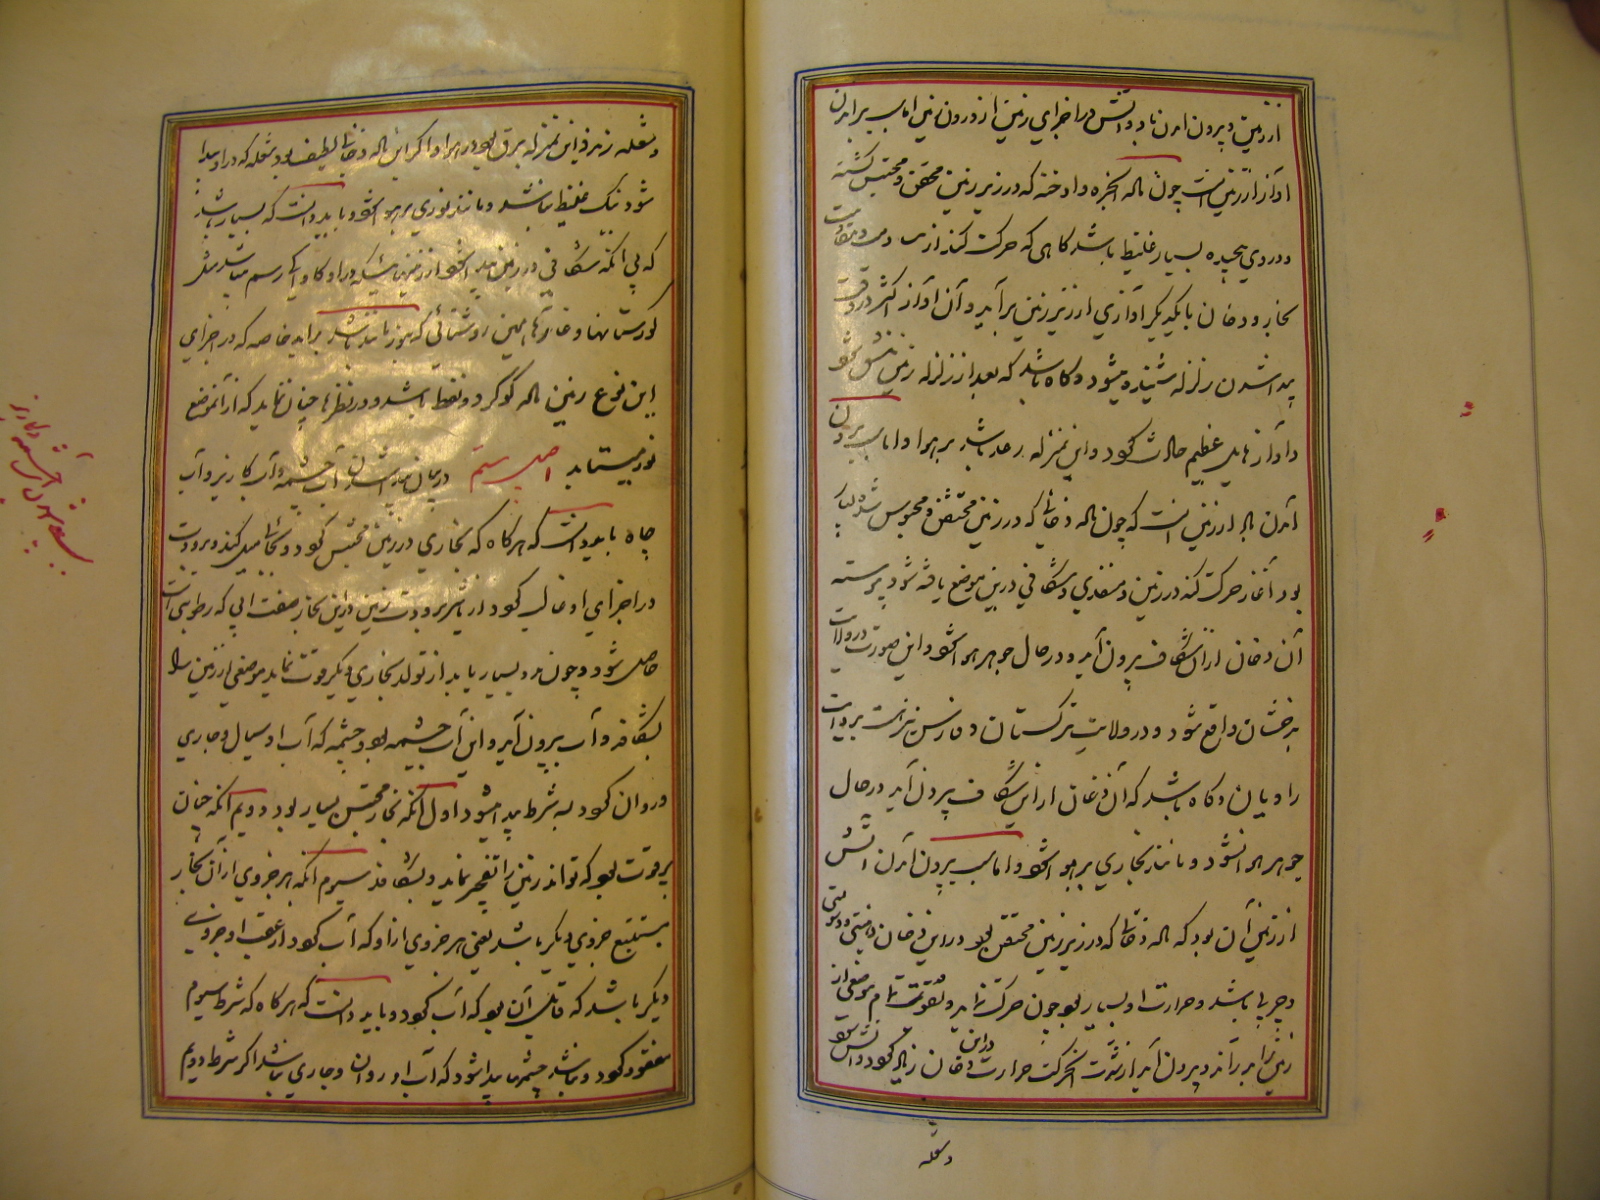 از زمین و بیرون آمدن باد و آتش در اجزای زمین از درون زمین اما سبب برآمدن
آواز از زمین آنست چون ماده ابخره و ادخنه که در زیر زمین محتقن و محتبس گشته
و دودی پیچیده بسیار غلیظ باشد گاهی که حرکت کند از
بخار و دخان با یکدیگر آوازی از زیر زمین برآید و آن آواز اکثر در وقت
پیدا شدن زلزله شنیده میشود و گاه باشد که بعد از زلزله زمین منشق شود
و آوازهای عظیم حادث گردد و این بمنزله رعد باشد بر هوا و اما سبب بیرون
آمدن باد از زمین آنست که چون ماده دخانی که در زمین محتقن و محبوس شده
بود آغاز حرکت کند در زمین و منفذی و شکافی در زمین موضع یافته شود پیوسته
آن دخان از آن شکاف بیرون آید و در حال جوهر هوا شود و این صورت در ولایت
بدخشان واقع شود و در ولایت ترکستان و فارس نیز است بروایت
راویان و گاه باشد که آن دخان از این شکاف بیرون آید در حال
جوهر هوا نشود و مانند بخاری بر هوا شود و اما سبب بیرون آمدن آتش
از زمین آن بود که ماده دخانی که در زیر زمین محتقن بود در این دخان دهنیتی و دسومتی
و چربی باشد و حرارت او بسیار بود چون حرکت نماید و بقوت تمام موضعی از
زمین را بدراند و بیرون آید از شدت حرکت حرارت در این دخان زیاده گردد و آتش شود
و شعله
و شعله زند و این بمنزله برق بود در هوا و اگر این ماده دخانی لطیف بود شعله که در او پیدا
شود نیک غلیظ نباشد و مانند نوری بر هوا شود و باید دانست که بسیار باشد
که بی آنکه شکافی در زمین پدید آید از زمینهائیکه در او کاویدن رسم باشد مثل
گورستانها و غارها همین روشنائی که هنوز مانند باشد برآید خاصه که در اجزای
این نوع زمین ماده گوگرد و نفط باشد و در نظرها چنان نماید که از آنموضع
نور میتابد اصل بیستم در بیان پیدا شدن آب چشمه و آب کاریز و آب
چاه باید دانست که هرگاه که بخاری در زمین محتبس گردد و بجائی میل کند و برودت
در اجزای او غالب گردد از تاثیر برودت زمین در این بخار صفت آبی که رطوبتی است
حاصل شود و چون مدد بسیار یابد از تولد بخاری دیگر قوت نماید موضعی از زمین را
بشکافد و آب بیرون آید و این آب چشمه بود و چشمه که آب او سیال و جاری
و روان گردد بسه شرط پیدا میشود اول آنکه بخار محتبس بسیار بود دویم آنکه چنان
پرقوت بود که تواند زمین را تفجیر نماید و بشکافد سیوم آنکه هر جزوی از آن بخار
مستتبع جزوی دیگر باشد یعنی هر جزوی از او که آب گردد از عقب او جزوی
دیگر باشد که قابل آن بود که آب گردد و باید دانست که هرگاه که شرط سیوم
مفقود گردد و نباشد چشمها پیدا شود که آب او روان و جاری نباشد اگر شرط دویم